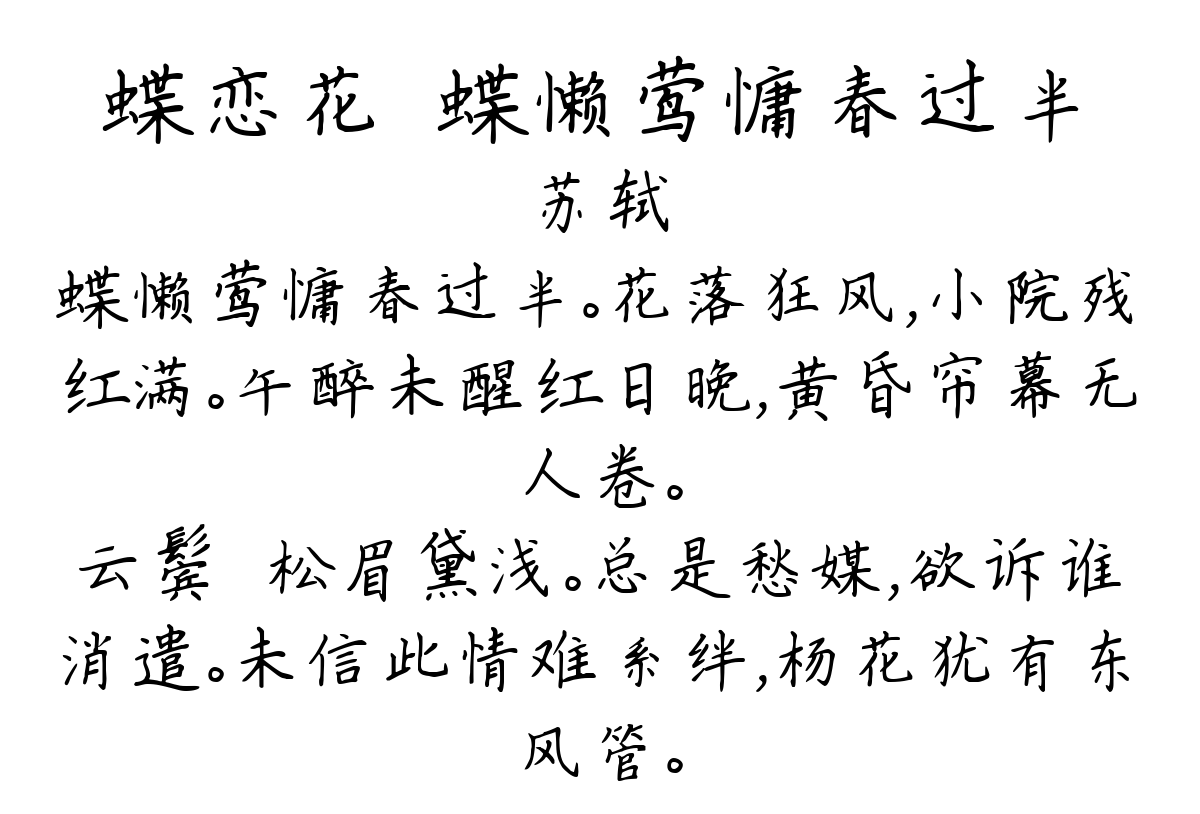 蝶恋花 蝶懒莺慵春过半
苏轼
蝶懒莺慵春过半。花落狂风,小院残
红满。午醉未醒红日晚,黄昏帘幕无
人卷。
云鬓 松眉黛浅。总是愁媒,欲诉谁
消遣。未信此情难系绊,杨花犹有东
风管。